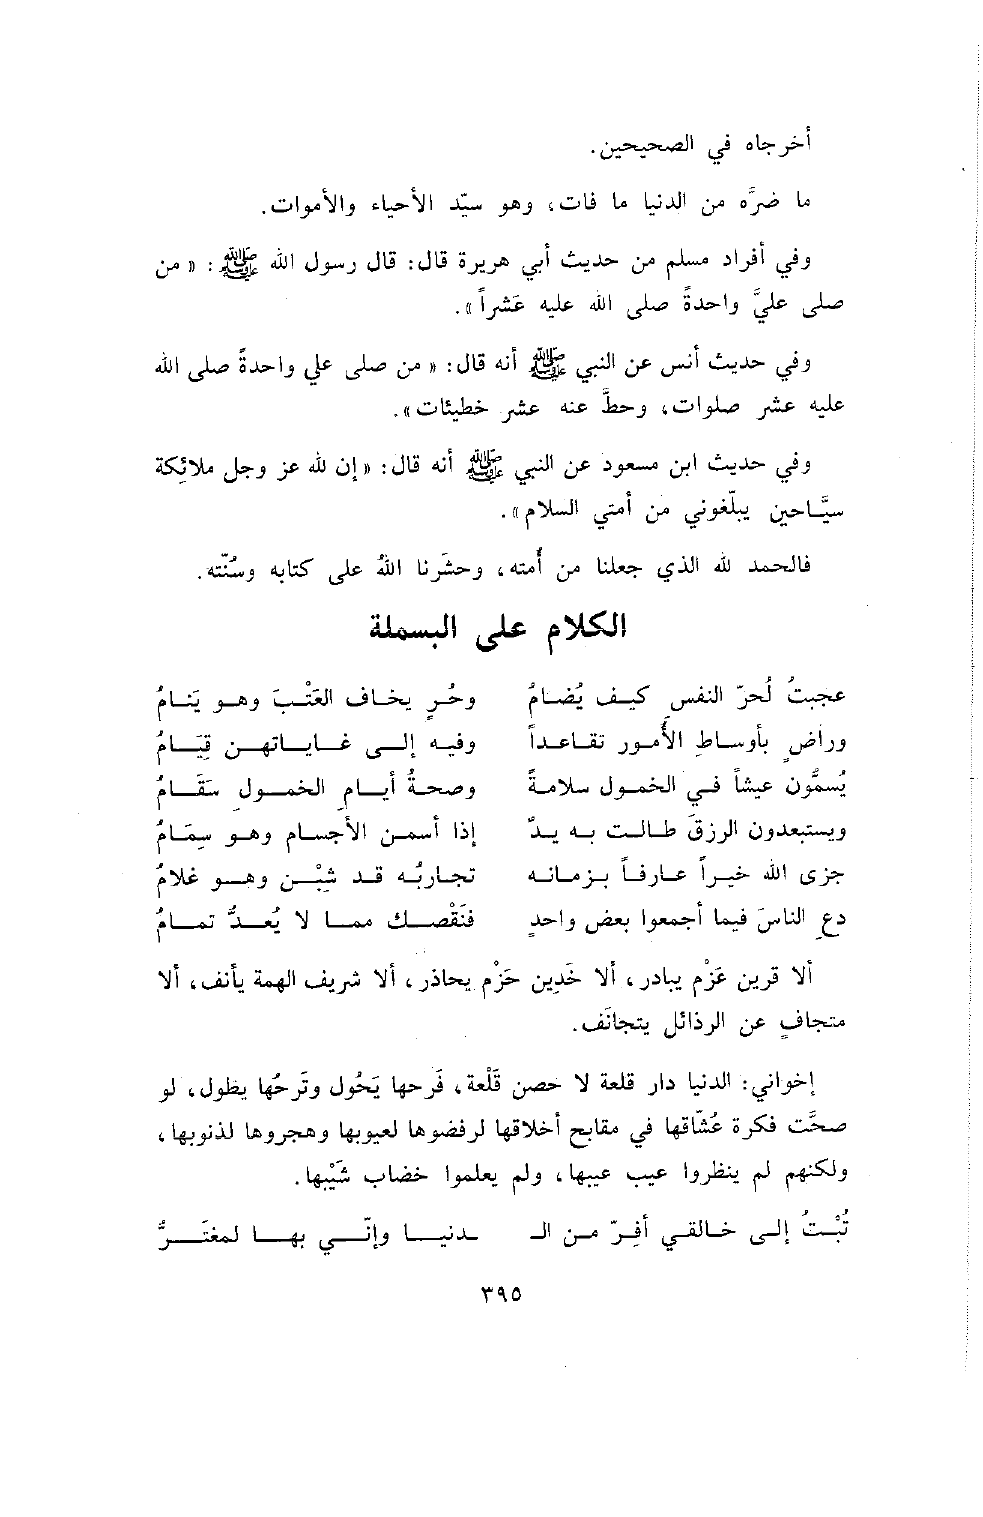 أخرجاه في الصحيحين.
ما ضرَّه من الدنيا ما فات، وهو سيّد الأحياء والأموات.
وفي أفراد مسلم من حديث أبي هريرة قال: قال رسول الله ﷺ: « من
صلى عليَّ واحدةً صلى الله عليه عَشراً ».
وفي حديث أنس عن النبي ﷺ أنه قال: « من صلى علي واحدةً صلى الله
عليه عشر صلوات، وحطَّ عنه عشر خطيئات ».
وفي حديث ابن مسعود عن النبي ﷺ أنه قال: « إن لله عز وجل ملائكة
سيَّاحين يبلّغوني من أمتي السلام ».
فالحمد لله الذي جعلنا من أُمته، وحشَرنا اللهُ على كتابه وسُنّته.
الكلام على البسملة
عجبتُ لُحرّ النفس كيف يُضامُ وحُرٍ يخاف العَتْبَ وهو يَنامُ
وراضٍ بأوساطِ الأُمور تقاعداً وفيه إلى غاياتهن قِيَامُ
يُسمُّون عيشاً في الخمول سلامةً وصحةُ أيامِ الخمولِ سَقَامُ
ويستبعدون الرزقَ طالت به يدٌ إذا أسمن الأجسام وهو سِمَامُ
جزى الله خيراً عارفاً بزمانه تجاربُه قد شِبْن وهو غلامُ
دعِ الناسَ فيما أجمعوا بعض واحدٍ فنَقْصك مما لا يُعدُّ تمامُ
ألا قرين عَزْم يبادر، ألا خَدِين حَزْم يحاذر، ألا شريف الهمة يأنف، ألا
متجافٍ عن الرذائل يتجانَف.
إخواني: الدنيا دار قلعة لا حصن قَلْعة، فَرحها يَحُول وتَرحُها يطول، لو
صحَّت فكرة عُشّاقها في مقابح أخلاقها لرفضوها لعيوبها وهجروها لذنوبها،
ولكنهم لم ينظروا عيب عيبها، ولم يعلموا خضاب شَيْبها.
تُبْتُ إلى خالقي أفِرّ من الـ ـدنيا وإنّي بها لمغتَرُّ
٣٩٥